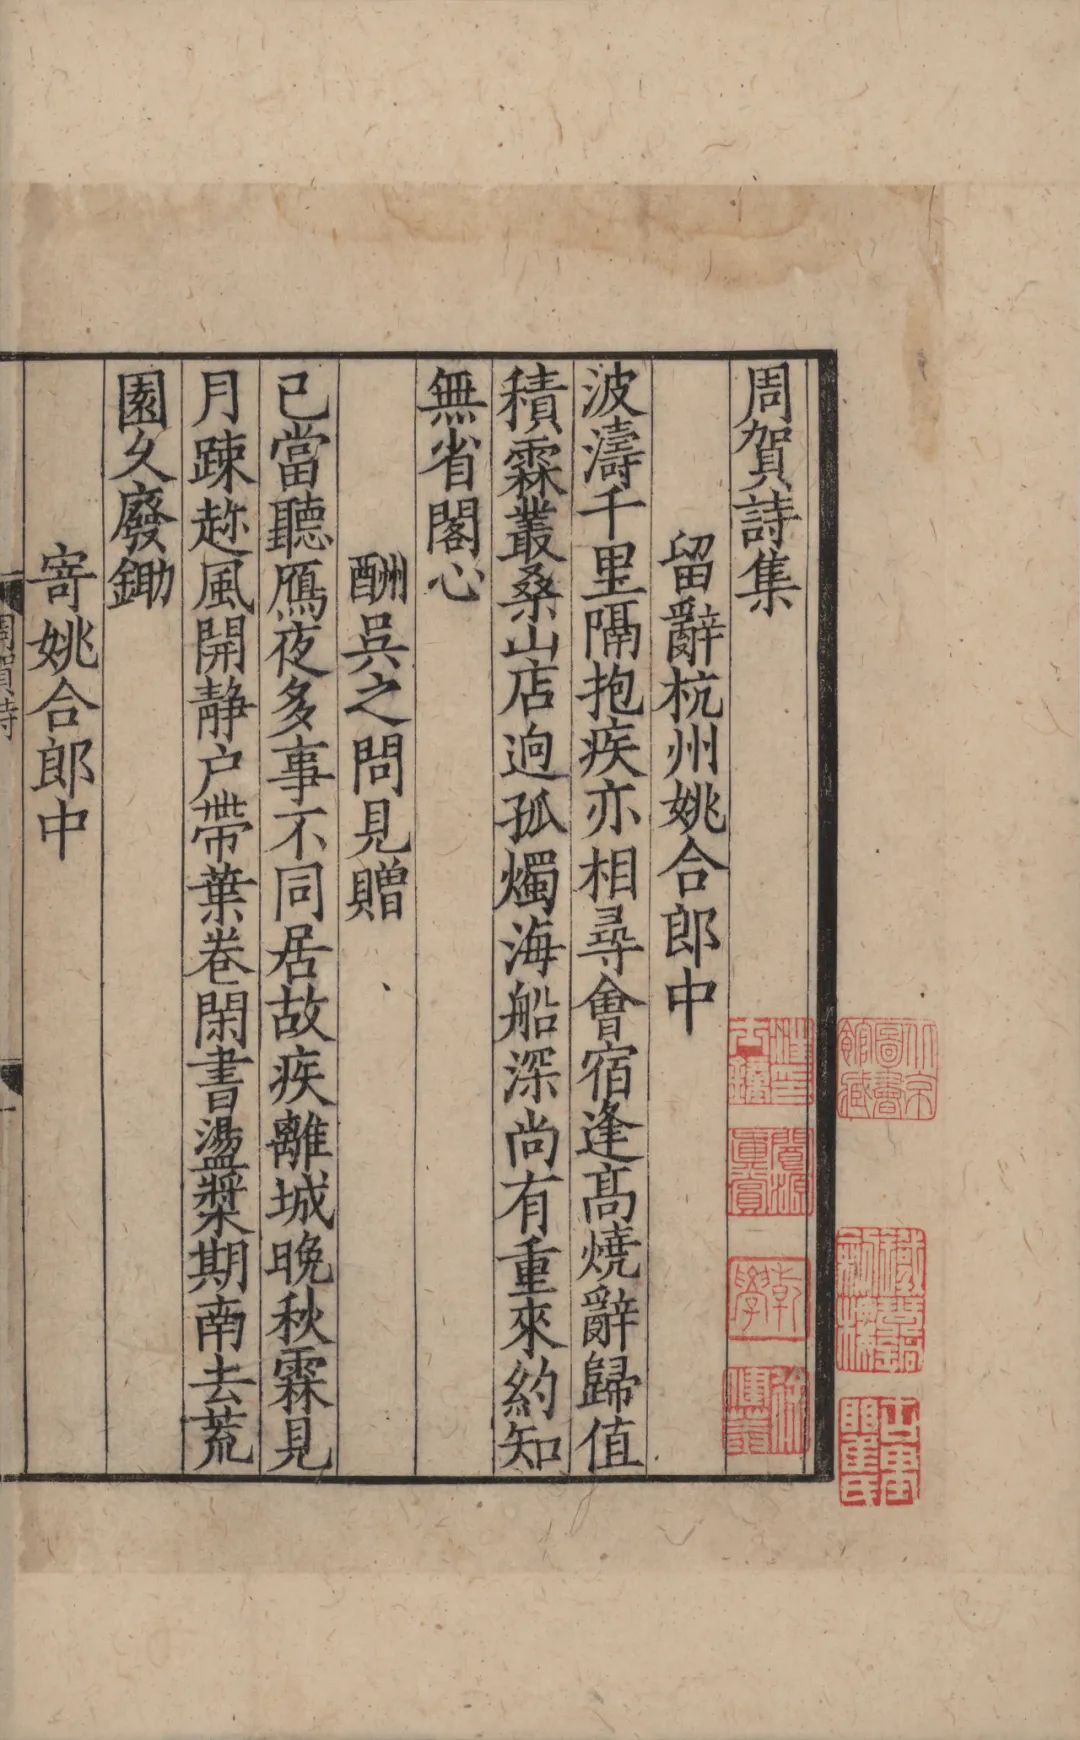 周賀詩集
留辭杭州姚合郎中
波濤千里隔抱疾亦相尋會宿逢高燒辭歸值
積霖叢桑山店逈孤燭海船深尚有重來約知
無省閣心
酬吳之問見贈
已當聽鴈夜多事不同居故疾離城晚秋霖見
月踈趂風開靜户帶葉卷閑書盪槳期南去荒
園久廢鋤
寄姚合郎中
周賀詩
北京圖書館藏
乾學